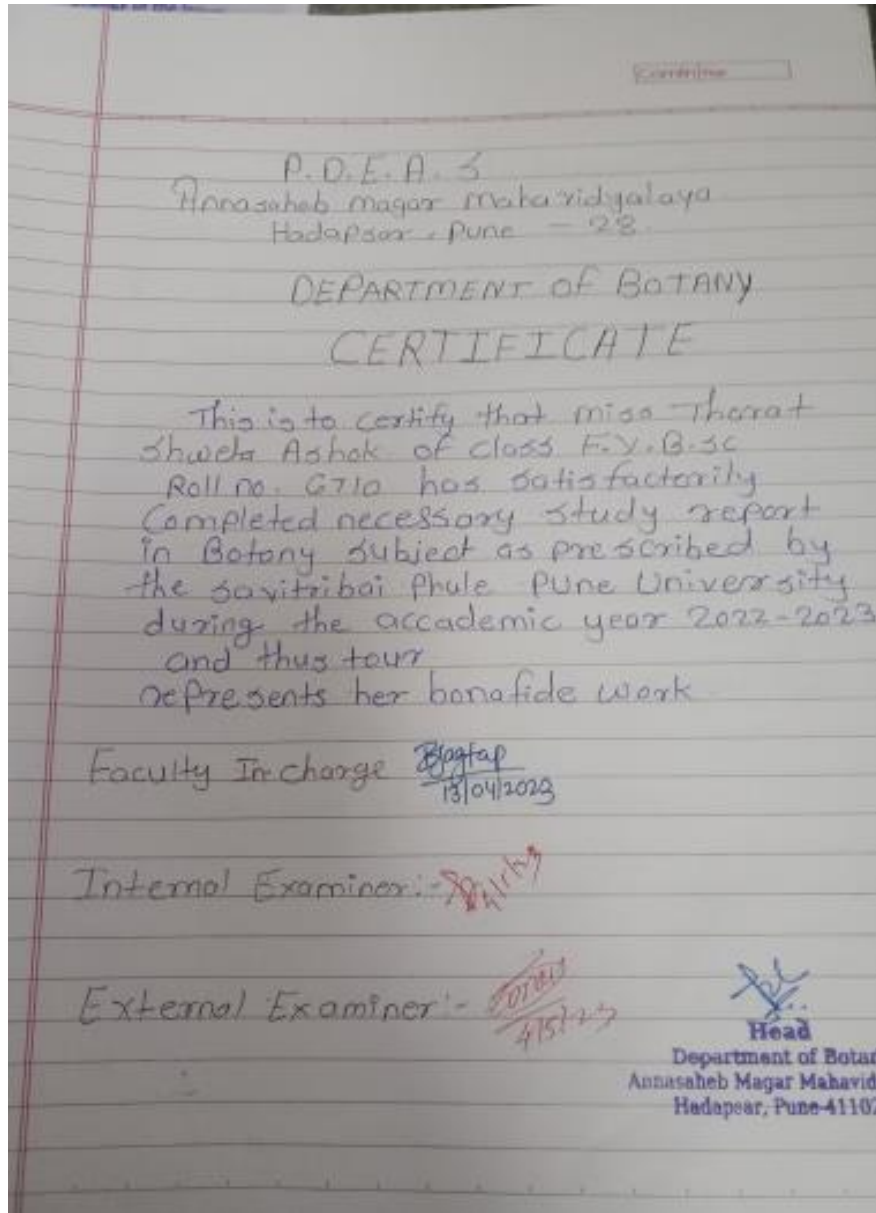 P.D.E.A.S
Annasaheb magar mahavidyalaya
Hadapsar, Pune - 28.
DEPARTMENT of BOTANY
CERTIFICATE
This is to certify that miss Tharat
Shweta Ashok of class F.Y.B.sc
Roll no. G710 has satisfactorily
Completed necessary study report
in Botany subject as prescribed by
the savitribai Phule Pune University
during the accademic year 2022-2023
and thus tour
represents her bonafide work
Faculty In charge Bjagtap
13/04/2023
Internal Examiner:-
External Examiner:-
4/5/23
Head
Department of Botan
Annasaheb Magar Mahavid
Hadapsar, Pune-41102